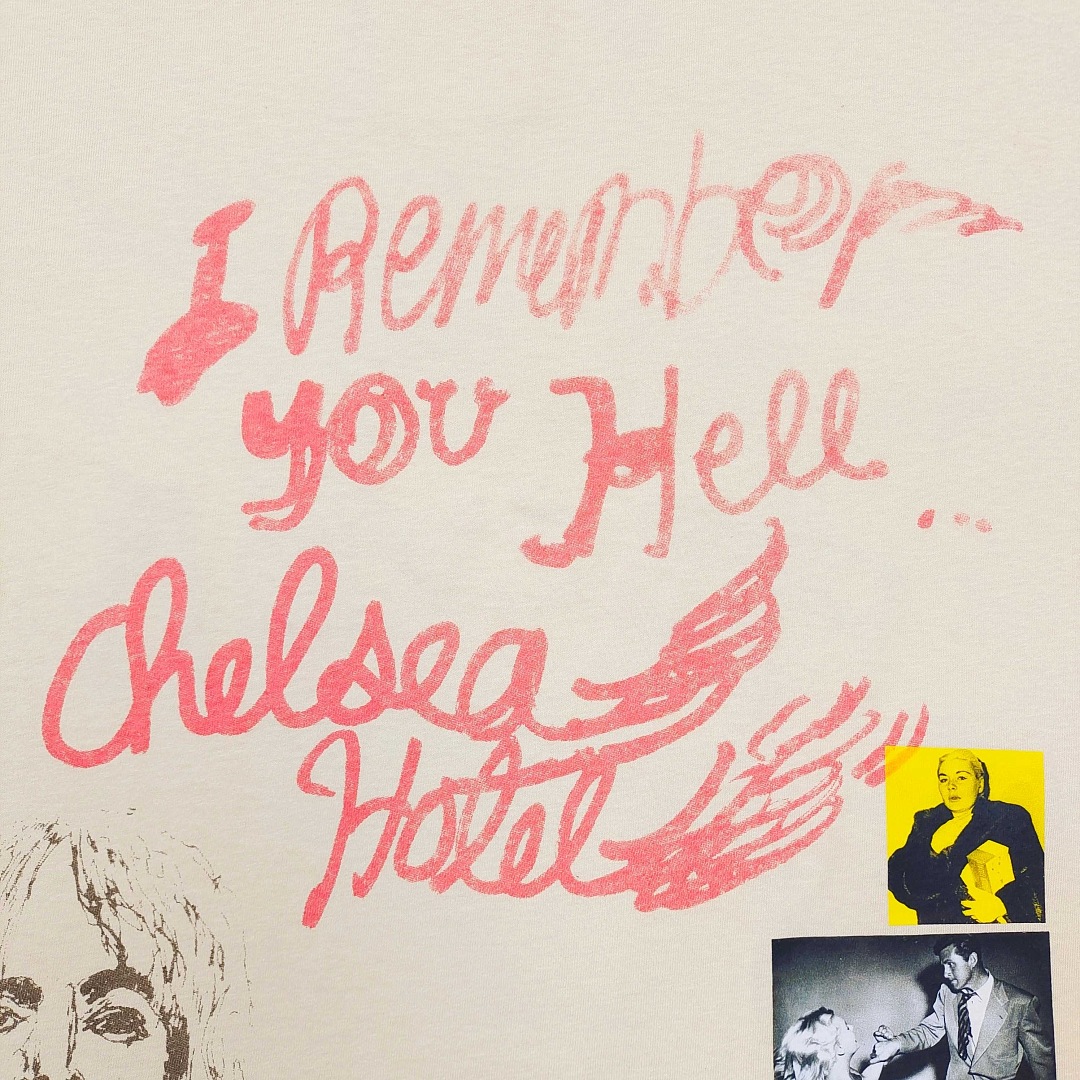 I Remember
you Hell...
Chelsea
Hotel